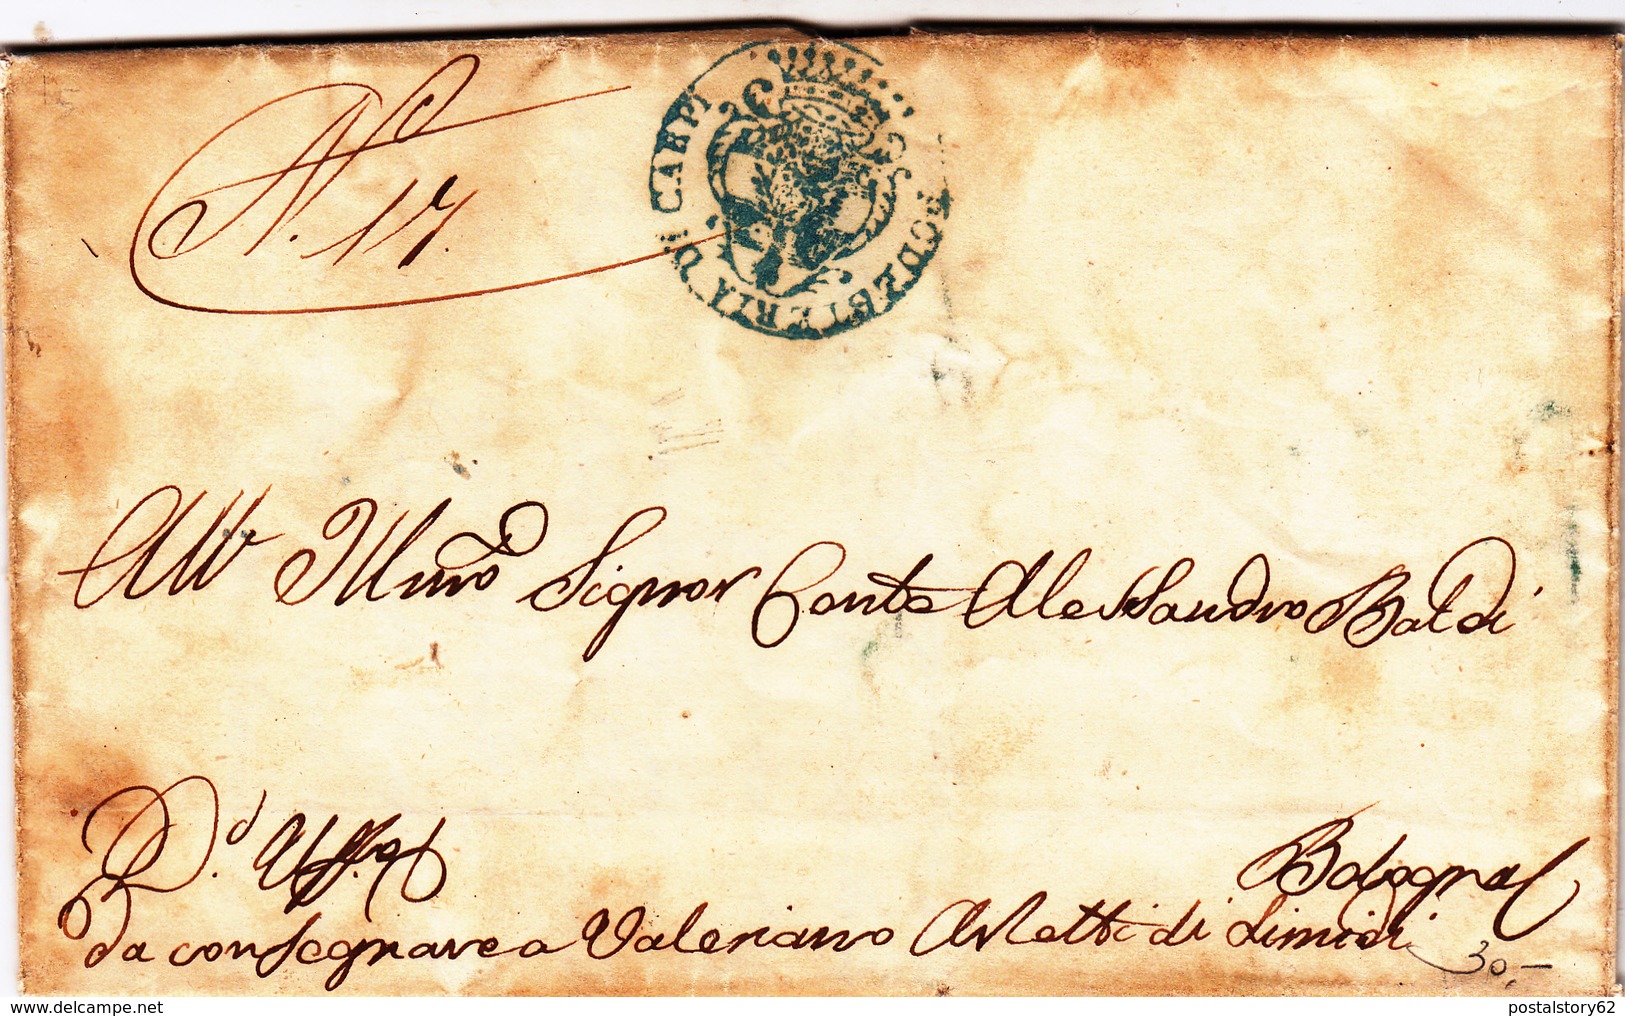 N.o 17.
PODESTERIA DI CARPI
All' Illmo Signor Conte Alessandro Baldi
Bologna
D'Uff.o
da consegnare a Valeriano Arletti di Limidi
30,-
postalstory62